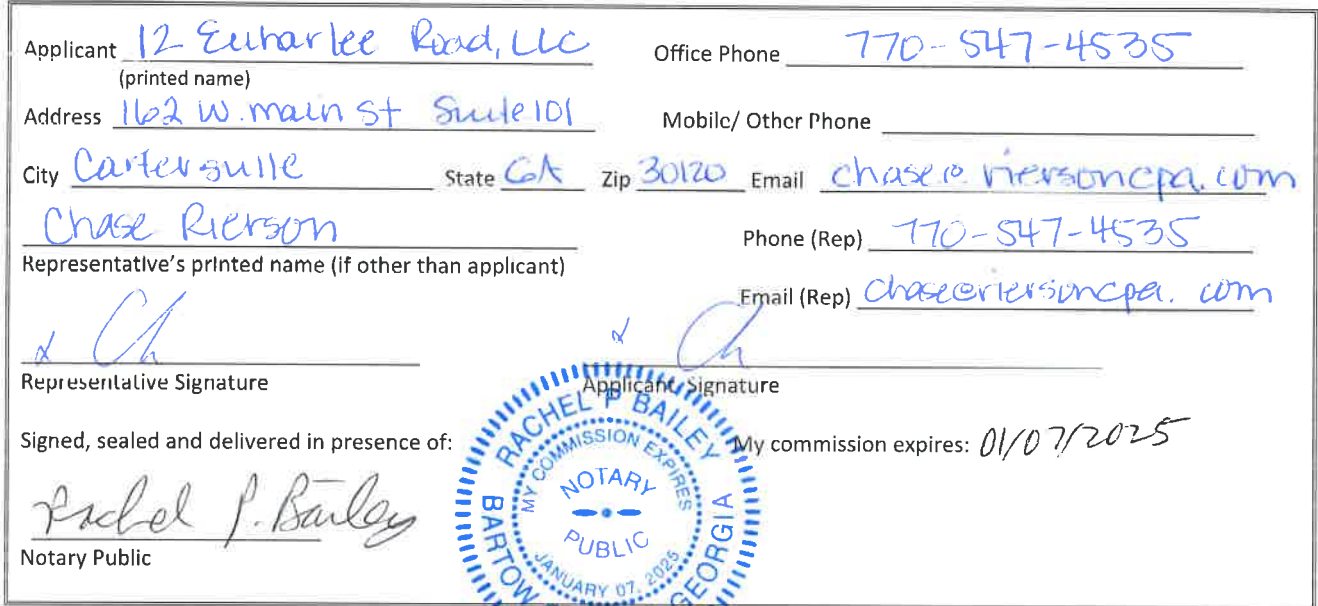 Applicant 12 Euharlee Road, LLC Office Phone 770-547-4535
(printed name)
Address 162 W. main St Suite 101 Mobile/ Other Phone
City Cartersville State GA Zip 30120 Email chase@riersoncpa.com
Chase Rierson Phone (Rep) 770-547-4535
Representative's printed name (if other than applicant)
Email (Rep) chase@riersoncpa.com
x Ch x Ch
Representative Signature Applicant Signature
Signed, sealed and delivered in presence of: My commission expires: 01/07/2025
Rachel P. Bailey
Notary Public
RACHEL P BAILEY
MY COMMISSION EXPIRES
NOTARY
PUBLIC
JANUARY 07, 2025
BARTOW
GEORGIA